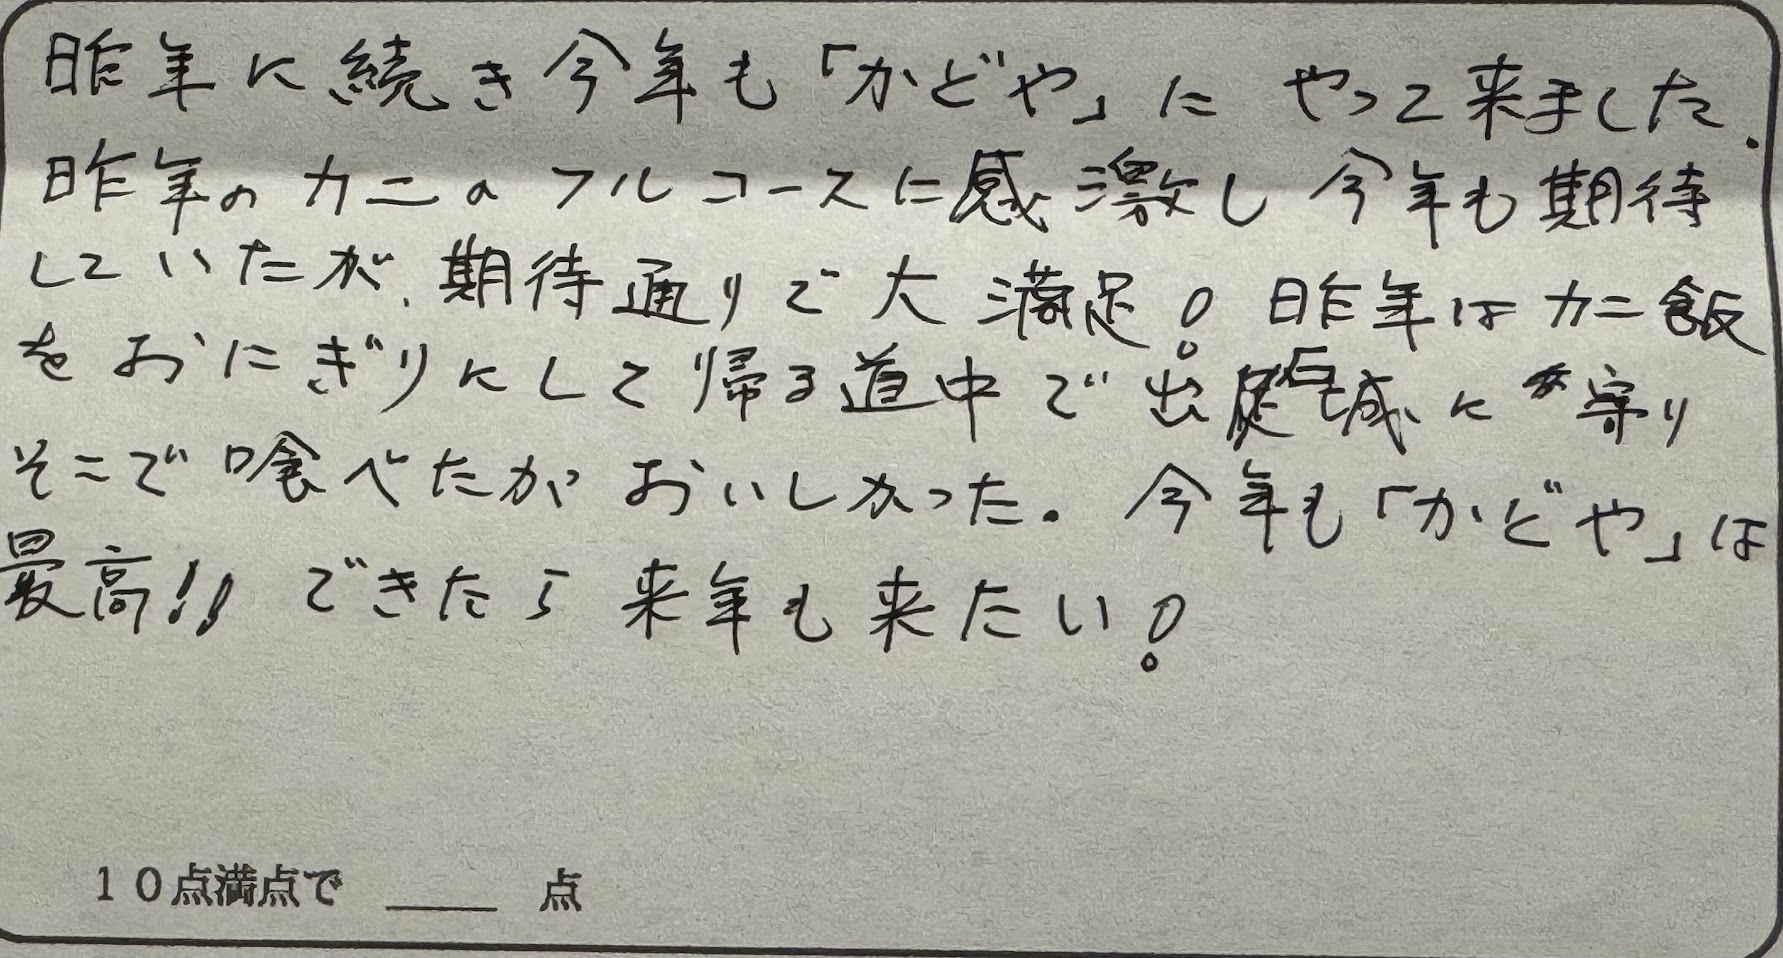 昨年に続き今年も「かどや」に やって来ました.
昨年のカニのフルコースに感激し 今年も期待
していたが、期待通りで大満足! 昨年はカニ飯
をおにぎりにして帰る道中で出石城に寄り
そこで喰べたがおいしかった。今年も「かどや」は
最高!! できたら来年も来たい!
10点満点で ____ 点